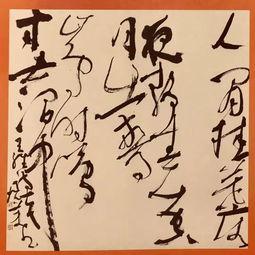 人闲桂花落
夜静春山空
月出惊
山鸟时鸣
春涧中